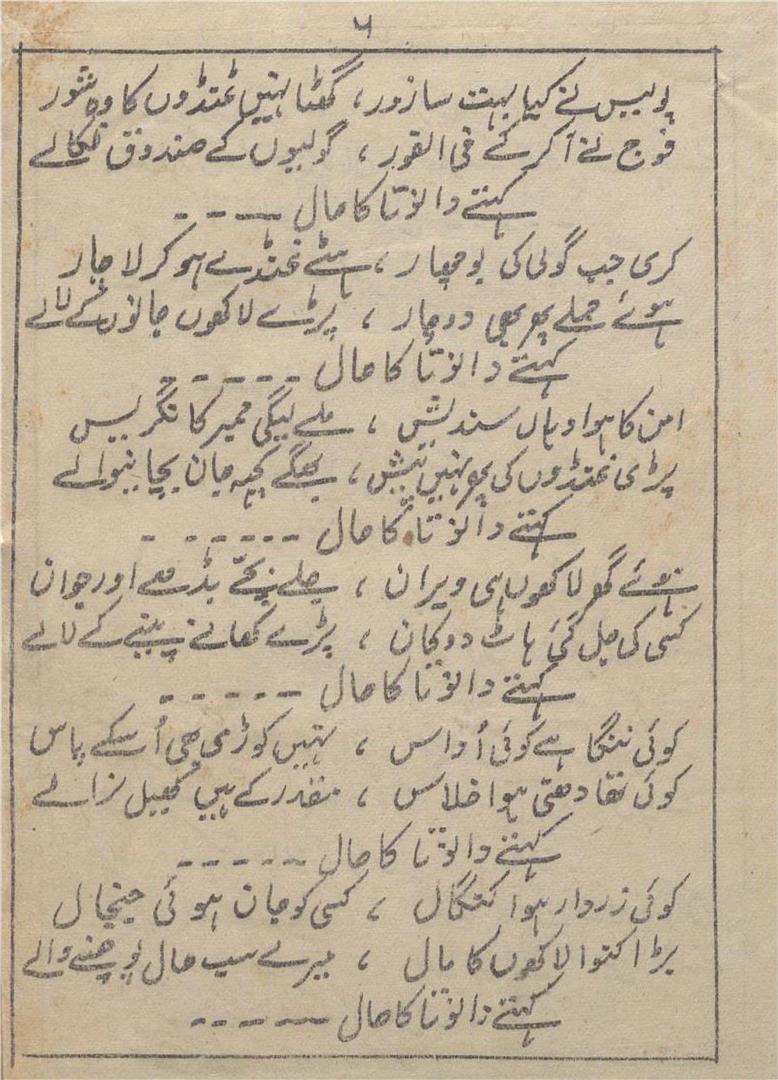 ۵
پولیس نے کیا بہت سا زور ، گھٹا نہیں غنڈوں کا وہ شور
فوج نے آ کر کے فی الفور ، گولیوں کے صندوق نکالے
کہتے دالوتا کا حال ۔ ۔ ۔
کری جب گولی کی بوچھار ، ہٹے غنڈے ہو کر لاچار
ہوئے حملے پھر بھی دو چار ، پڑے لاکھوں جانوں کے لالے
کہتے دالوتا کا حال ۔ ۔ ۔ ۔ ۔
امن کا ہوا وہاں سندیش ، ملے لیگی ممبر کانگریس
پڑی غنڈوں کی پھر نہیں پیش ، بھگے کچھ جان بچانیوالے
کہتے دالوتا کا حال ۔ ۔ ۔ ۔ ۔ ۔
ہوئے گھر لاکھوں ہی ویران ، چلے بچے بڈھے اور جوان
کسی کی جل گئی ہاٹ دوکان ، پڑے کھانے پینے کے لالے
کہتے دالوتا کا حال ۔ ۔ ۔ ۔ ۔
کوئی ننگا ہے کوئی اُداس ، نہیں کوڑی بھی اُسکے پاس
کوئی تھا دھنی ہوا خلاس ، مقدر کے ہیں کھیل نرالے
کہتے دالوتا کا حال ۔ ۔ ۔ ۔ ۔
کوئی زردار ہوا کنگال ، کسی کو جان ہوئی جنجال
بڑا کتوا لاکھوں کا مال ، میرے سب حال پوچھنے والے
کہتے دالوتا کا حال ۔ ۔ ۔ ۔ ۔